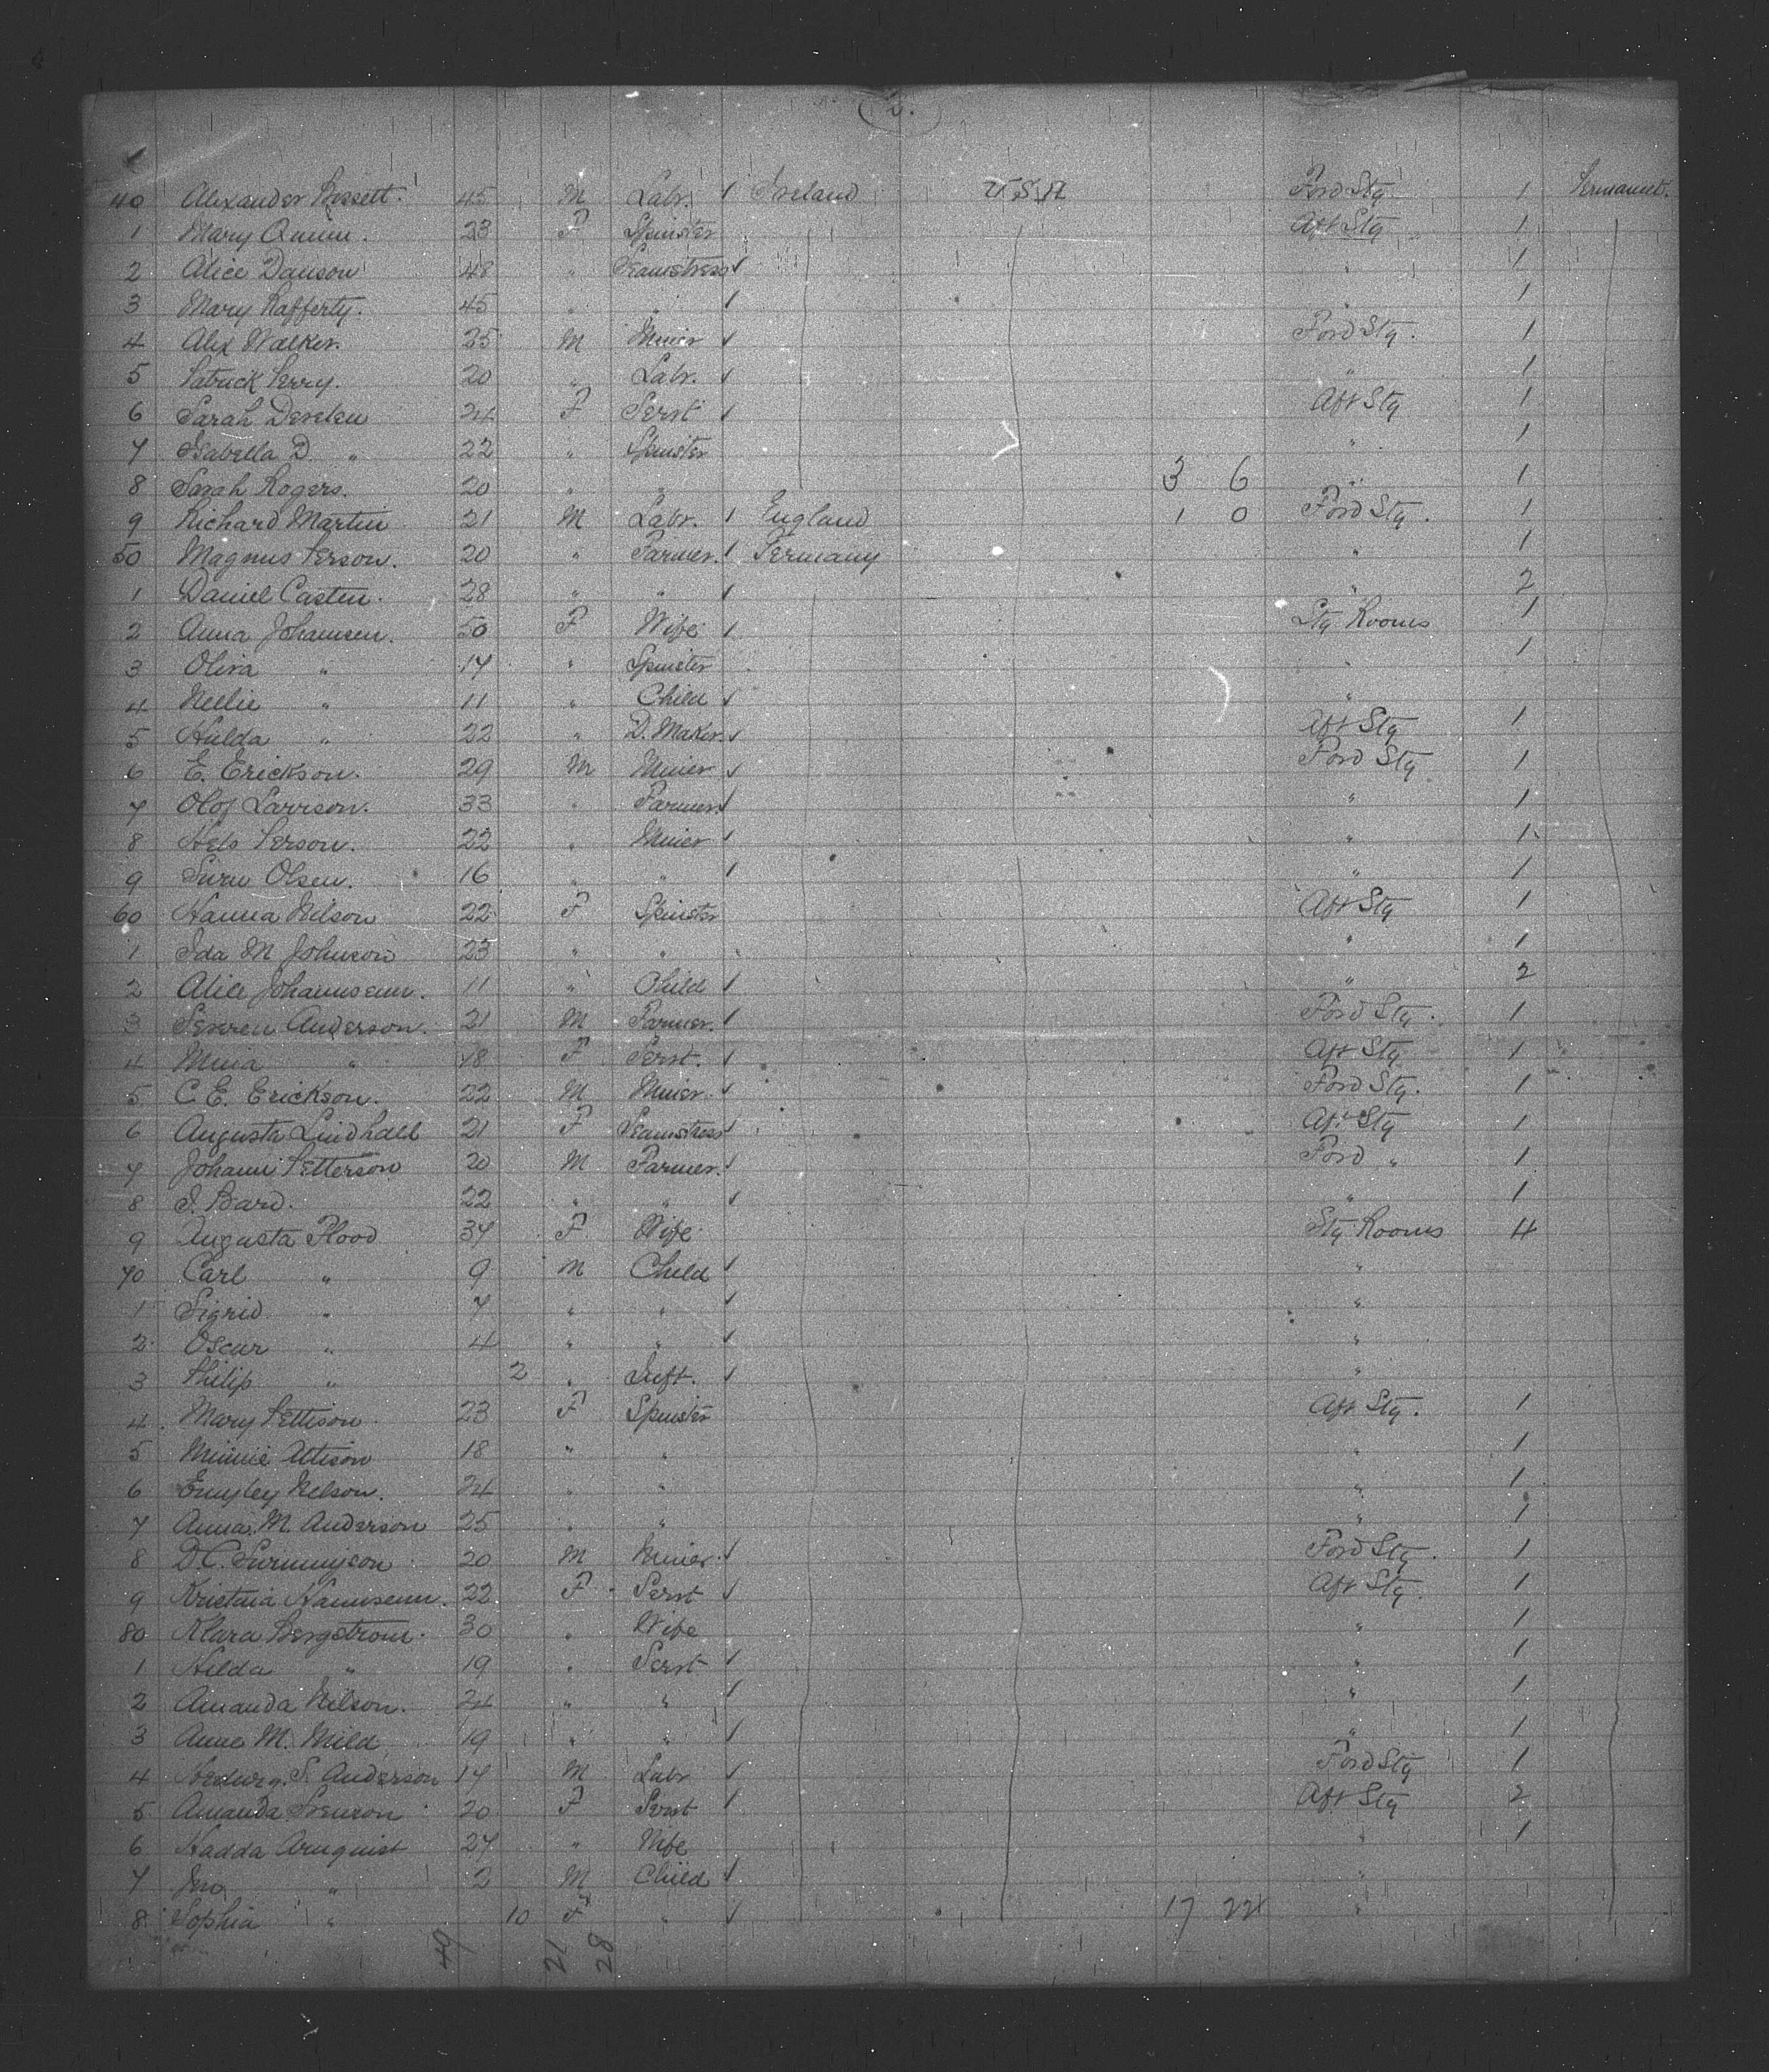 2.
40 Alexander Bissett. 45 M Labr. 1 Ireland U.S.A Ford Stg. 1 Permanent.
1 Mary Quinn. 23 F Spinster Aft Stg " 1
2 Alice Dawson 48 " Seamstress 1 " 1
3 Mary Rafferty. 45 " " 1 " 1
4 Alex Walker. 25 M Miner 1 Ford Stg. 1
5 Patrick Perry. 20 " Labr. 1 " 1
6 Sarah 24 F Servt 1 Aft Stg 1
7 Isabella D. " 22 " Spinster " 1
8 Sarah Rogers. 20 " " 3 6 " 1
9 Richard Martin 21 M Labr. 1 England 1 0 Ford Stg. 1
50 Magnus Person. 20 " Farmer. 1 Germany " 1
1 Daniel Casten. 28 " " 1 " 2
2 Anna Johansen. 50 F Wife 1 Stg Rooms 1
3 Oliva " 17 " Spinster " 1
4 Nellie " 11 " Child 1 "
5 Hulda " 22 " D. Maker. 1 Aft Stg 1
6 E. Erickson. 29 M Miner 1 Ford Stg 1
7 Olof Larrson. 33 " Farmer. 1 " 1
8 Nels Person. 22 " Miner 1 " 1
9 Olsen. 16 " " 1 " 1
60 Hanna Nilson 22 F Spinster Aft Stg 1
1 Ida M Johnson 23 " " " 1
2 Alice Johannsenn. 11 " Child 1 " 2
3 Anderson. 21 M Farmer. 1 Ford Stg. 1
4 Minia " 18 F Servt. 1 Aft Stg 1
5 C. E. Erickson. 22 M Miner. 1 Ford Stg. 1
6 Augusta Lindhall 21 F Seamstress 1 Aft Stg 1
7 Johann Petterson 20 M Farmer. 1 Ford " 1
8 Bard. 22 " " 1 " 1
9 Augusta Flood 37 F Wife Stg Rooms 4
70 Carl " 9 M Child 1 "
1 Sigrid " 7 " " 1 "
2 Oscar " 4 " " 1 "
3 Philip " 2 " Inft. 1 "
4 Mary Pettison 23 F Spinster Aft Stg. 1
5 Minnie 18 " " " 1
6 Nelson. 24 " " " 1
7 Anna. M. Anderson 25 " " " 1
8 D. C. 20 M Miner. 1 Ford Stg. 1
9 Kristnia Hannsenn. 22 F Servt 1 Aft Stg. 1
80 Klara Bergstrom. 30 " Wife " 1
1 Hilda " 19 " Servt 1 " 1
2 Amanda Nilson. 24 " " 1 " 1
3 Anne M. Mild 19 " " 1 " 1
4 S. Anderson 17 M Labr 1 Ford Stg 1
5 Amanda Svenson 20 F Servt 1 Aft Stg 2
6 Hadda Arnquist 27 " Wife " 1
7 Jno " 2 M Child 1 "
8 Sophia " 10 F " 1 17 22 "
49 21 28